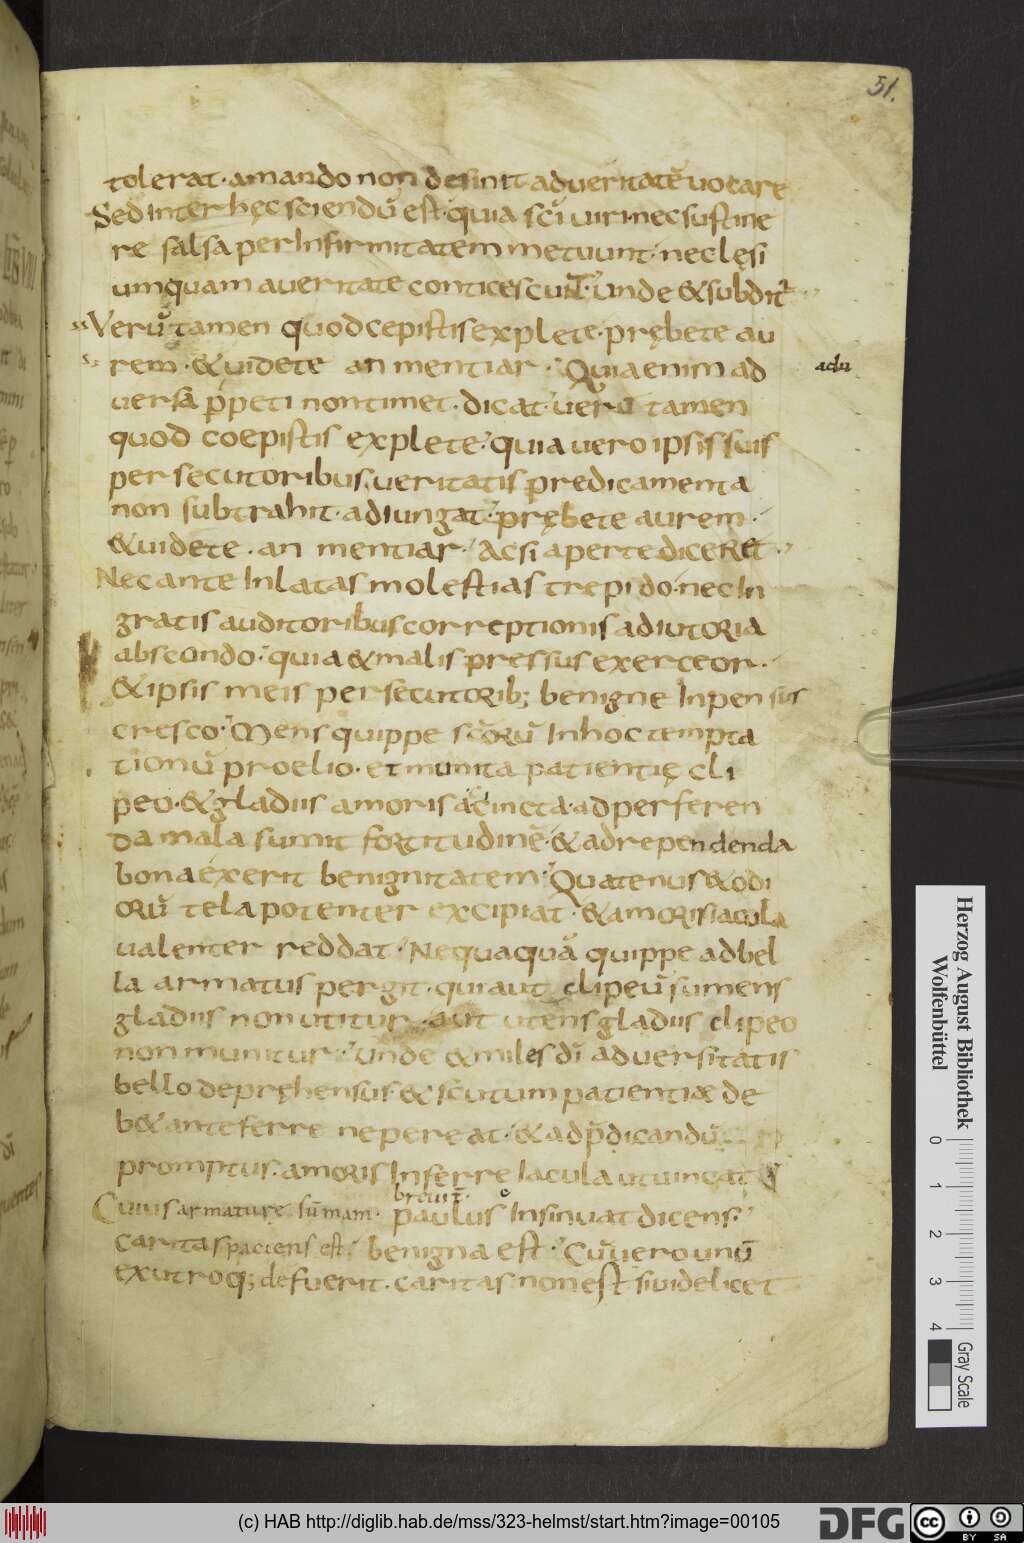 51.
tolerat · amando non desinit ad veritatē vocare
Sed inter hęc sciendū est · quia sc̄i viri · nec sustine
re salsa per infirmitatem metuunt · nec lęsi
umquam a veritate conticescunt · unde & subdit᷑
Verū tamen quod cepistis explete · prębete au
rem · & videte an mentiar · Quia enim ad
adu
versa p̲peti non timet · dicat · verū tamen
quod coepistis explete · quia vero ipsis suis
persecutoribus veritatis predicamenta
non subtrahit · adiungat · prębete aurem ·
& videte · an mentiar · Ac si aperte diceret ·
Nec ante inlatas molestias trepido · nec in
gratis auditoribus correptionis adiutoria
abscondo · quia & malis pressus exerceor ·
& ipsis meis persecutorib; benigne inpensus
cresco · Mens quippe sc̄orū in hoc tempta
tionū proelio · et munita patientię cli
peo · & gladiis amoris accincta · ad perferen
da mala sumit fortitudinē · & ad rependenda
bona exerit benignitatem · Quatenus & odi
orū tela potenter excipiat · & amoris iacula
valenter reddat · Nequaquā quippe ad bel
la armatus pergit · qui aut clipeū sumens
gladiis non utitur · aut utens gladiis clipeo
non munitur · Unde & miles dī adversitatis
bello depręhensus & scutum patientiæ de
b& anteferre ne pereat · & ad p̄dicandū
promptus · amoris inferre iacula ut vincat
brevit̄ ·
Cuius armature sūmam · paulus insinuat dicens ·
caritas paciens est · benigna est · Cū vero unū
ex utroq; defuerit · caritas non est si videlicet
Herzog August Bibliothek
Wolfenbüttel
0 1 2 3 4
Gray Scale
(c) HAB http://diglib.hab.de/mss/323-helmst/start.htm?image=00105
DFG
cc BY SA